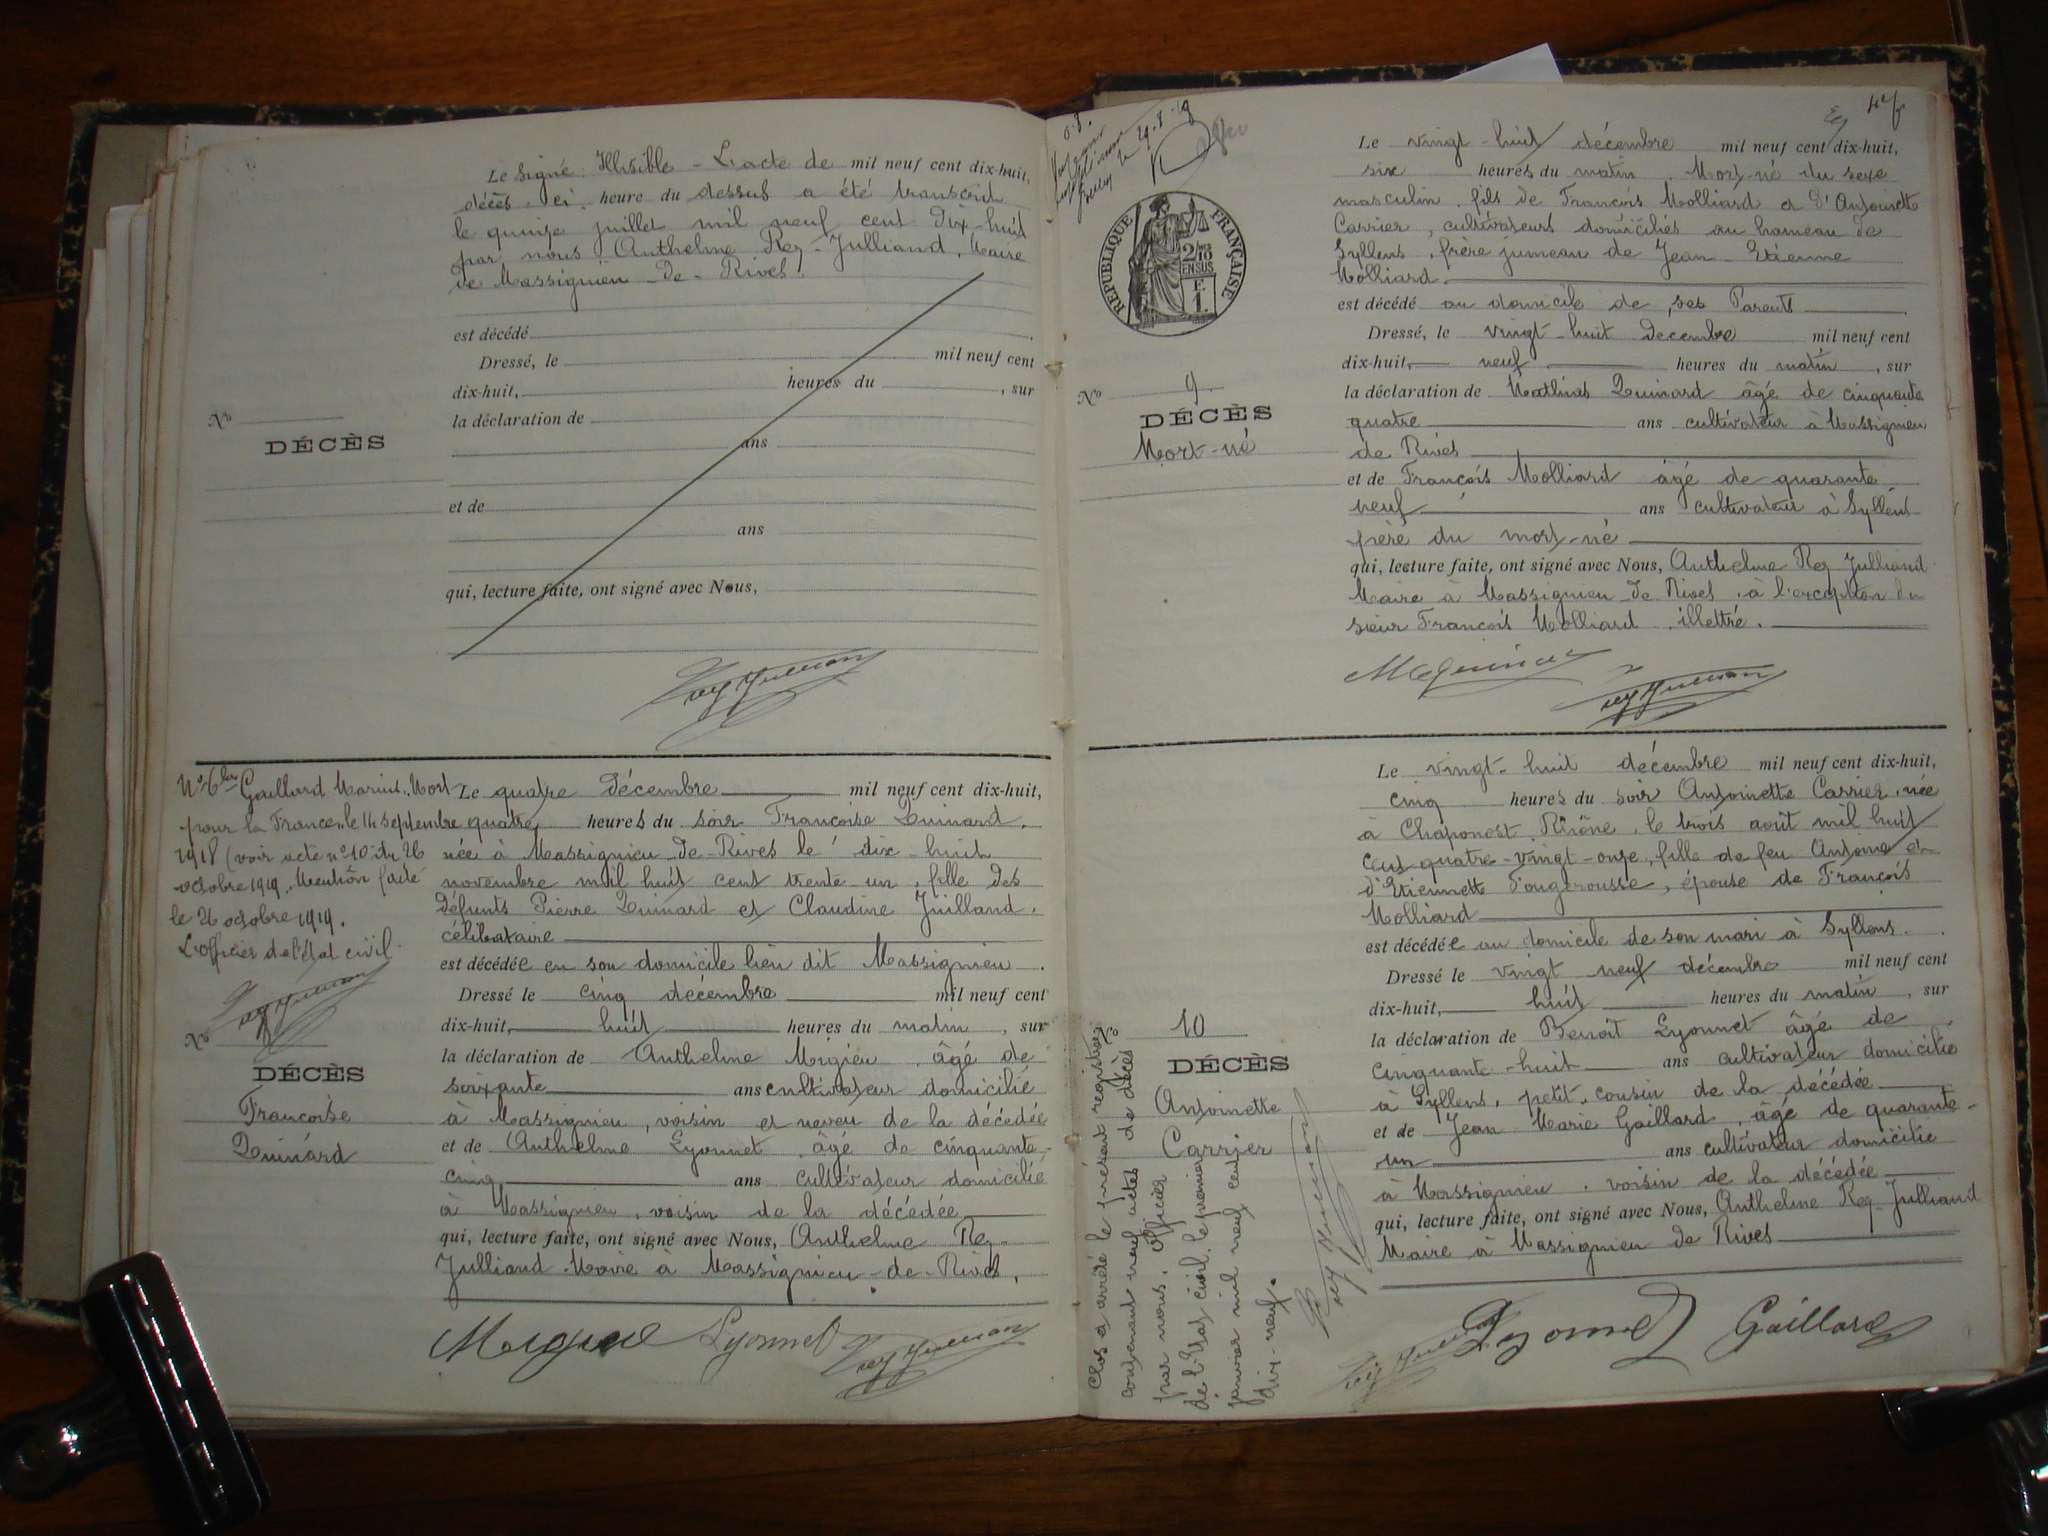 Le Signé. Illisible - L'acte de mil neuf cent dix-huit,
décès ci heure du dessus a été transcrit
le quinze juillet mil neuf cent Dix-huit
par nous Anthelme Rey-Julliand, Maire
de Massignieu-de-Rives.
est décédé
Dressé, le mil neuf cent
dix-huit, heures du , sur
la déclaration de
ans
et de
ans
qui, lecture faite, ont signé avec Nous,
No
DÉCÈS
No 6bis Gaillard Marius. Mort
pour la France le 14 septembre
1918 (voir acte no 10 du 26
octobre 1919. Mention faite
le 26 octobre 1919.
L'officier de l'état civil.
No
DÉCÈS
Françoise
Quinard
Le quatre Décembre mil neuf cent dix-huit,
quatre heures du soir Françoise Quinard,
née à Massignieu-de-Rives le dix-huit
novembre mil huit cent trente-un, fille des
défunts Pierre Quinard et Claudine Juilland,
célibataire
est décédée en son domicile lieu dit Massignieu.
Dressé le cinq décembre mil neuf cent
dix-huit, huit heures du matin, sur
la déclaration de Anthelme Migieu âgé de
soixante ans cultivateur domicilié
à Massignieu, voisin et neveu de la décédée
et de Anthelme Lyonnet, âgé de cinquante-
cinq ans cultivateur domicilié
à Massignieu, voisin de la décédée
qui, lecture faite, ont signé avec Nous, Anthelme Rey-
Julliand Maire à Massignieu-de-Rives.
Lyonnet
4e f
RÉPUBLIQUE FRANÇAISE
2/10
EN SUS
F.
1.
No 9
DÉCÈS
Mort-né
Le vingt-huit décembre mil neuf cent dix-huit,
six heures du matin. Mort-né du sexe
masculin, fils de François Molliard et d'Antoinette
Carrier, cultivateurs domiciliés au hameau de
Syllens, frère jumeau de Jean-Etienne
Molliard.
est décédé au domicile de ses Parents
Dressé, le vingt-huit decembre mil neuf cent
dix-huit, neuf heures du matin, sur
la déclaration de Mathias Quinard âgé de cinquante
quatre ans cultivateur à Massignieu
de Rives
et de François Molliard âgé de quarante
neuf ans cultivateur à Syllens
père du mort-né
qui, lecture faite, ont signé avec Nous, Anthelme Rey Julliand
Maire à Massignieu-de Rives, à l'exception du
sieur François Molliard illettré.
No 10
DÉCÈS
Antoinette
Carrier
Clos et arrêté le présent registre
contenant neuf actes de décès
par nous, officier
de l'Etat civil, le premier
janvier mil neuf cent
dix-neuf.
Le vingt-huit décembre mil neuf cent dix-huit,
cinq heures du soir Antoinette Carrier, née
à Chaponost, Rhône, le trois août mil huit
cent quatre-vingt-onze, fille de feu Antoine et
d'Etiennette Fougerousse, épouse de François
Molliard
est décédée au domicile de son mari à Syllens.
Dressé le vingt neuf décembre mil neuf cent
dix-huit, huit heures du matin, sur
la déclaration de Benoît Lyonnet âgé de
cinquante-huit ans cultivateur domicilié
à Syllens, petit-cousin de la décédée
et de Jean Marie Gaillard, âgé de quarante-
un ans cultivateur domicilié
à Massignieu, voisin de la décédée
qui, lecture faite, ont signé avec Nous, Anthelme Rey-Julliand
Maire à Massignieu de Rives
Lyonnet Gaillard